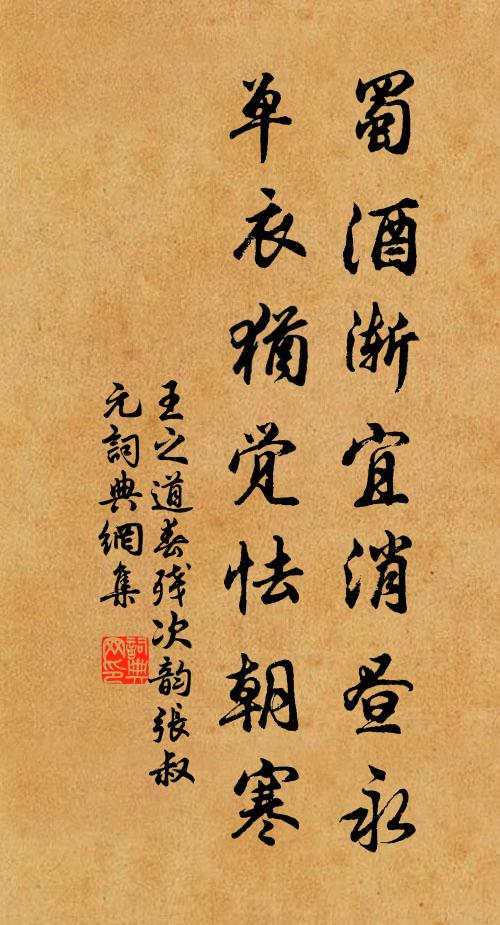 蜀酒渐宜消昼永
单衣猶觉怯朝寒
王之道春残次韵張叔
元詞典網集
詞典
网印